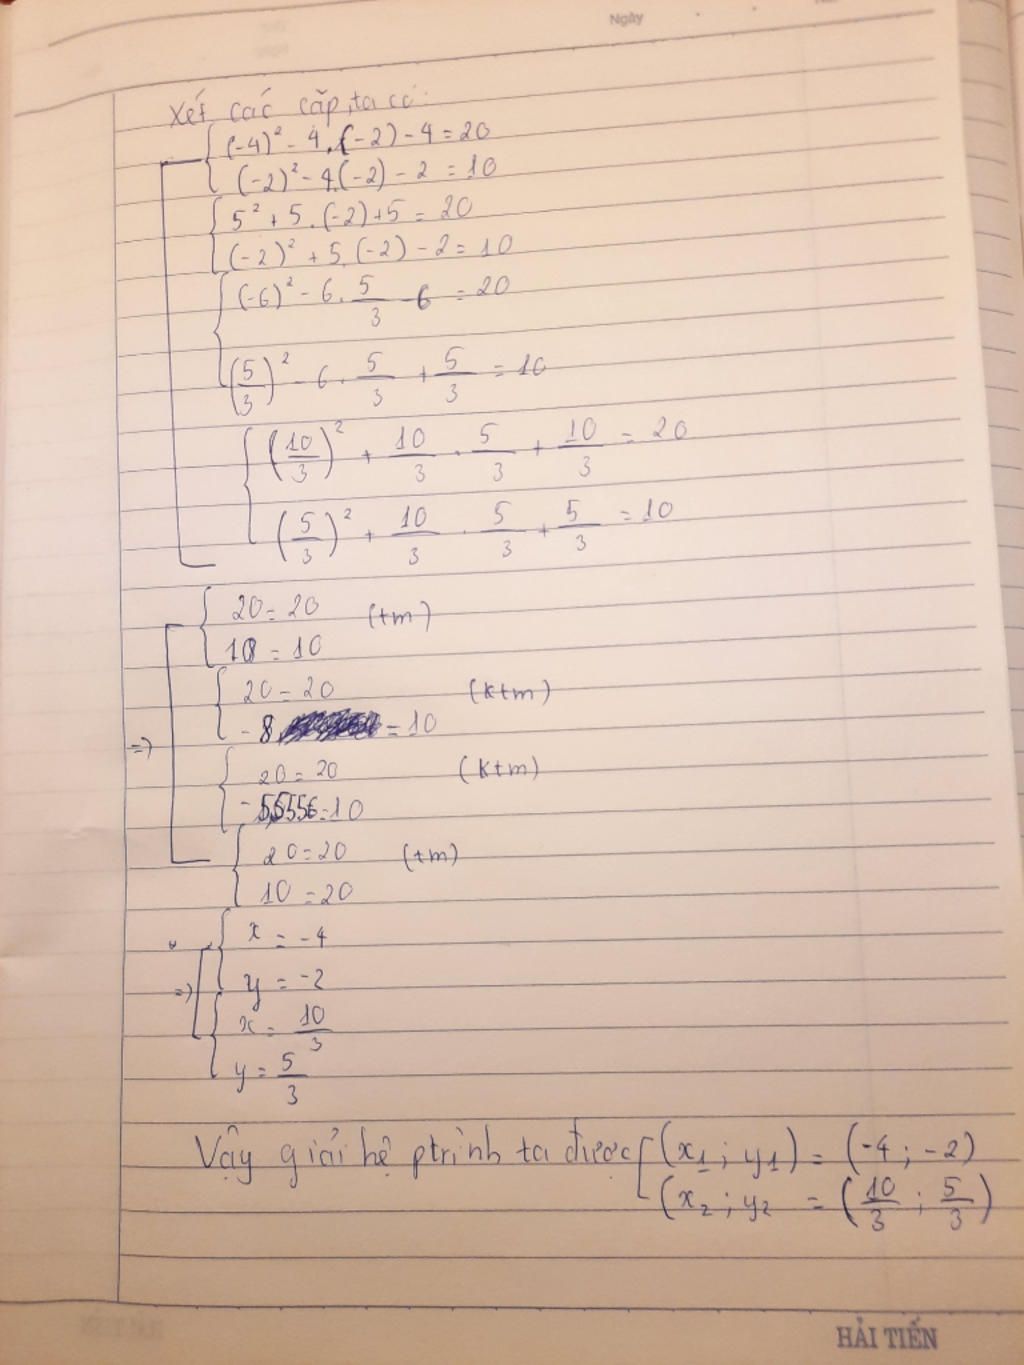 Ngày
Xét các cặp, ta có:
(-4)² - 4.(-2) - 4 = 20
(-2)² - 4.(-2) - 2 = 10
5² + 5.(-2) + 5 = 20
(-2)² + 5.(-2) - 2 = 10
(-6)² - 6.5/3 - 6 = 20
(5/3)² - 6.5/3 + 5/3 = 10
(10/3)² + 10/3 . 5/3 + 10/3 = 20
(5/3)² + 10/3 . 5/3 + 5/3 = 10
20 = 20 (tm)
10 = 10
20 = 20 (ktm)
-8 = 10
=> 20 = 20 (ktm)
-5,5556 = 10
20 = 20 (tm)
10 = 20
x = -4
=> y = -2
x = 10/3
y = 5/3
Vậy giải hệ ptrình ta được [(x₁; y₁) = (-4; -2)
(x₂; y₂ = (10/3; 5/3)
HẢI TIẾN